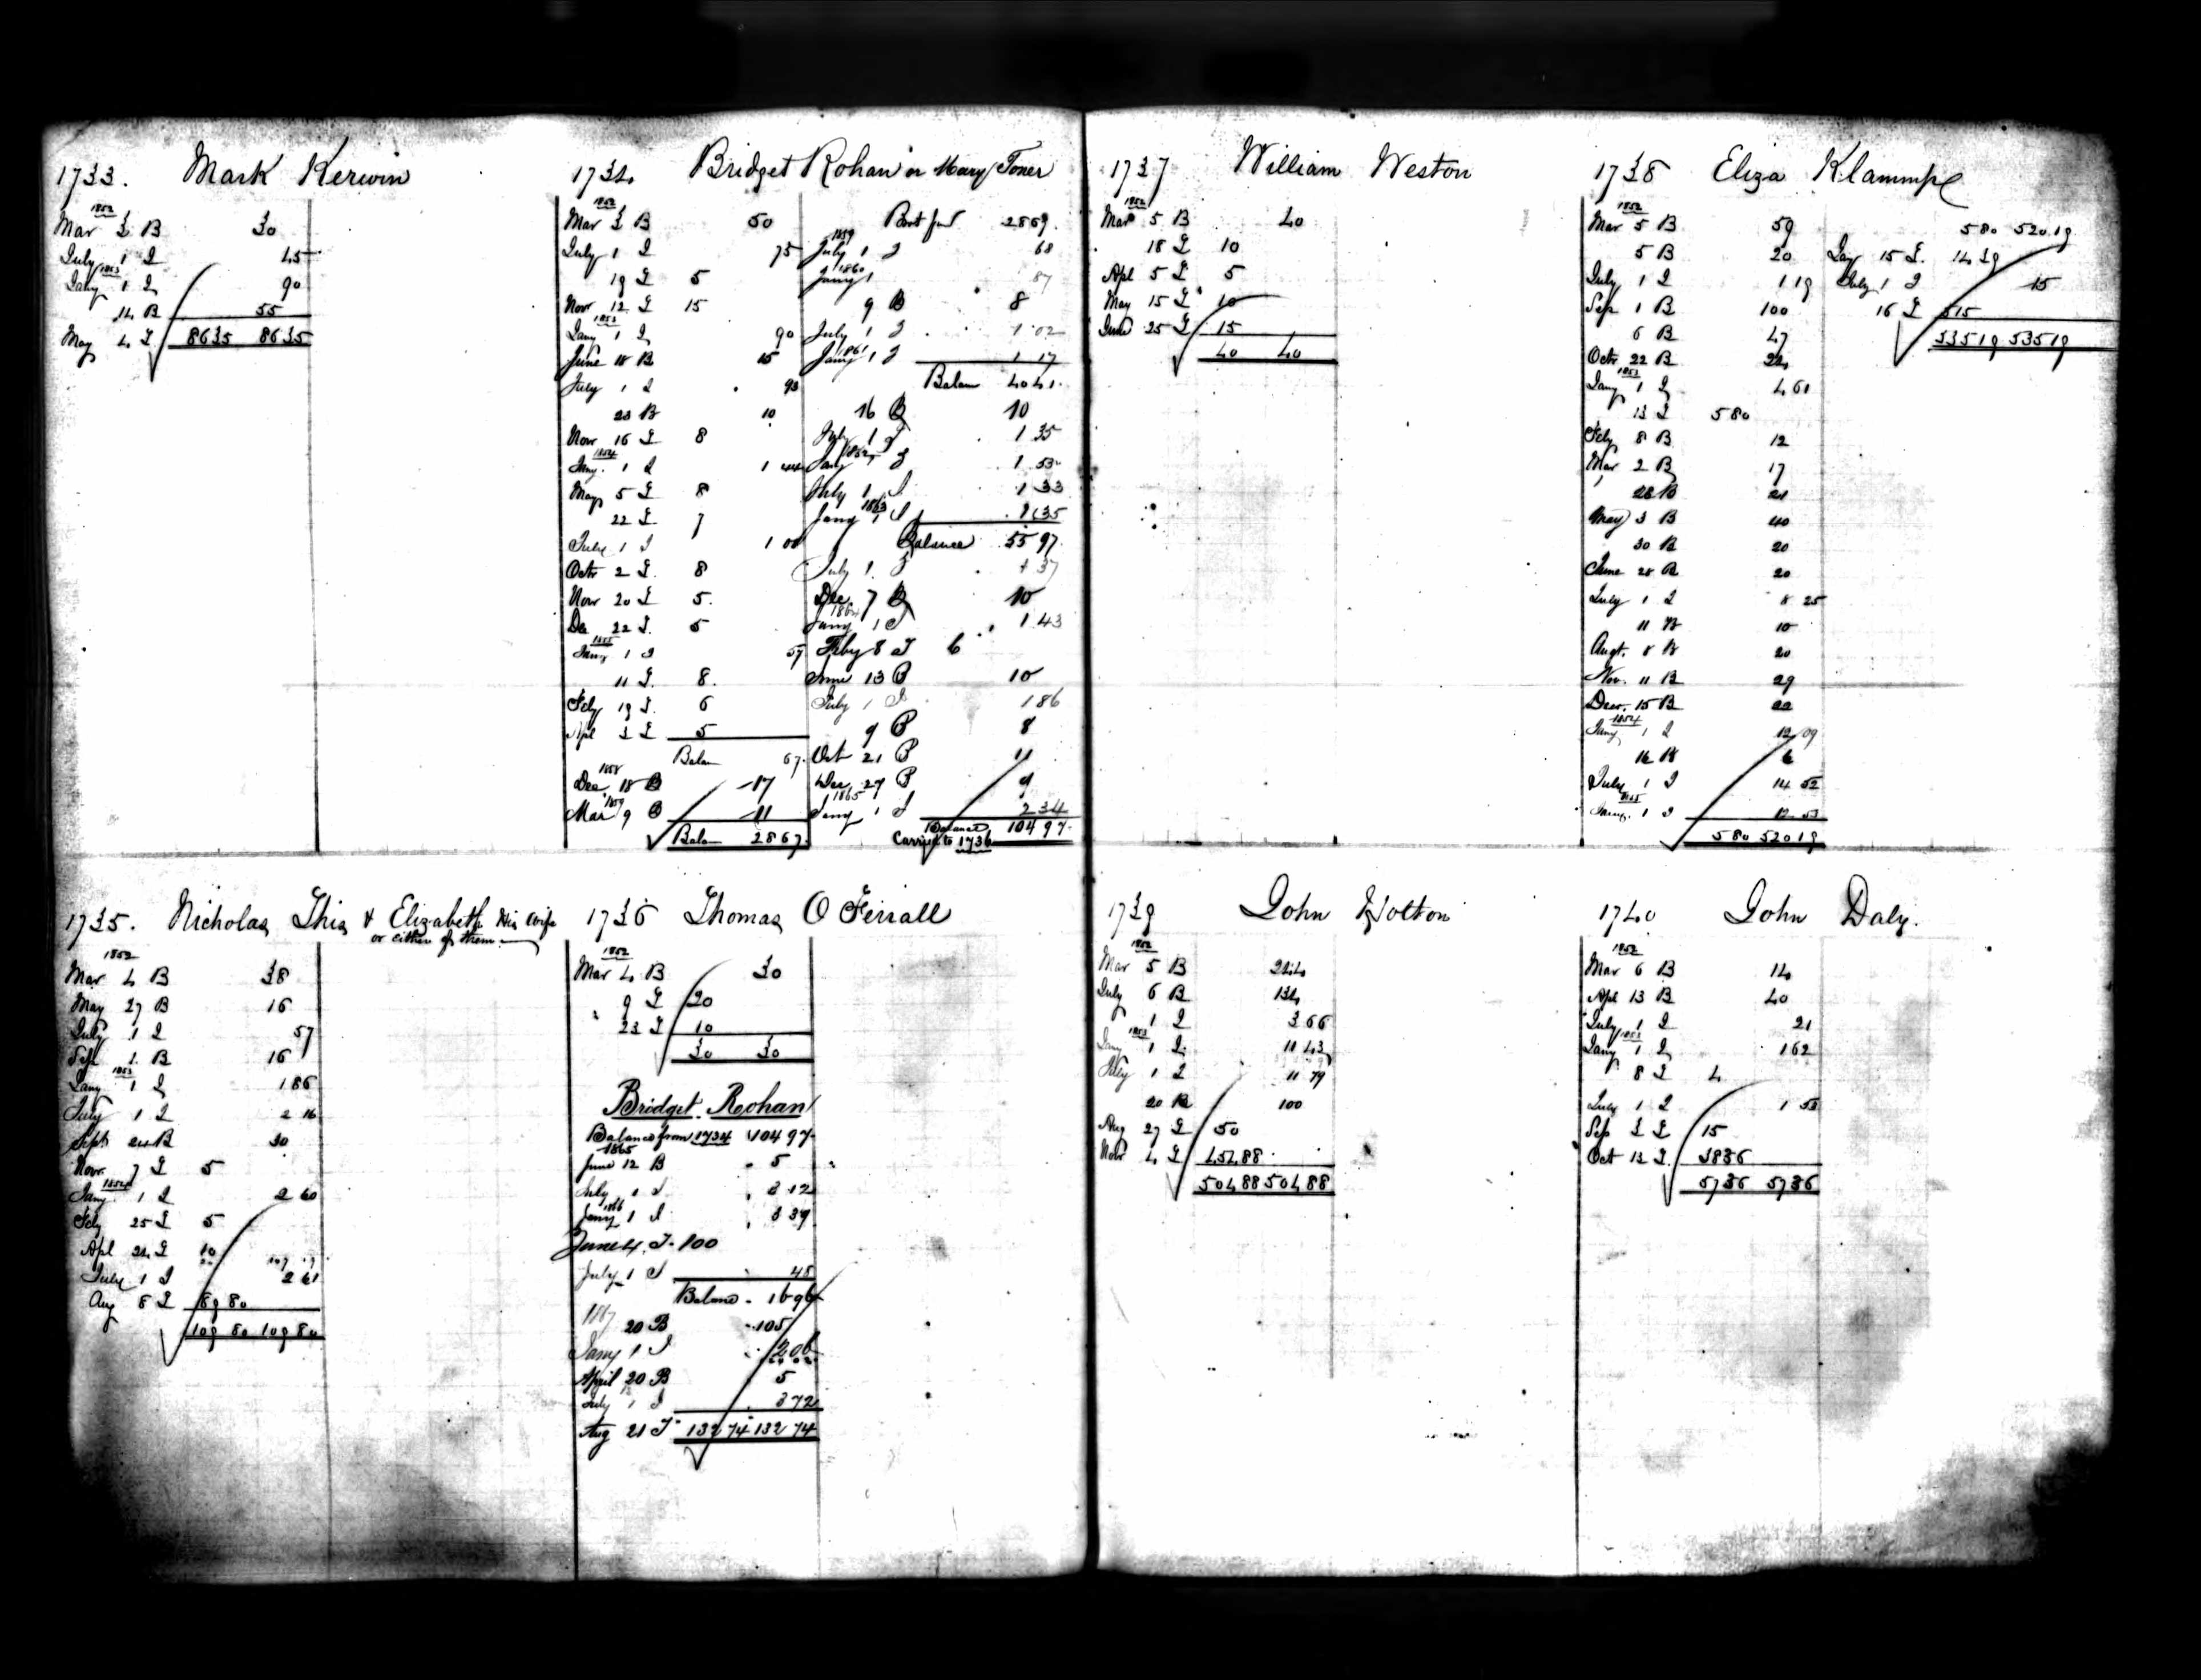 1733. Mark Kerwin
1852
Mar 3 B 30
July 1 I 45
1853
Jany 1 I 90
14 B 55
May 4 I 8635 8635
1734 Bridget Rohan or Mary Toner
1852
Mar 3 B 50
July 1 I 75
19 I 5
Nov 12 I 15
1853
Jany 1 I 90
June 18 B 15
July 1 I 93
23 B 10
Nov 16 I 8
1854
Jany. 1 I 1 44
May 5 I 8
22 I 7
July 1 I 1 00
Octr 2 I. 8
Nov 20 I 5.
De 22 I. 5
1855
Jany 1 I 57
11 I. 8.
Feby 19 I. 6
Apl 3 I 5
Balan 67.
1858
Dec 18 B 17
1859
Mar 9 B 11
Balan 2867.
2867.
1859
July 1 I 68
1860
Jany 1 87
9 B 8
July 1 I 1 02
1861
Jany 1 I 1 17
Balan 40 41.
16 B 10
July 1 I 1 35
1862
Jany I 1 53
July 1 I 1 33
1863
Jany 1 I 1 35
Balance 55 97.
July 1. I 1 37
Dec. 7 B 10
1864
Jany 1 I 1 43
Feby 8 I 6
June 13 B 10
July 1 I 1 86
9 B 8
Oct 21 B 11
Dec 27 B 9
1865
Jany 1 I 2 34
Balance 104 97.
Carried to 1736
1735. Nicholas This & Elizabeth His Wife
or either of them
1852
Mar 4 B 38
May 27 B 16
July 1 I 57
Sep 1. B 16
1853
Jany 1 I 1 86
July 1 I 2 16
Sept 24 B 30
Novr 7 I 5
1854
Jany 1 I 2 60
Feby 25 I 5
Apl 24 I 10
July 1 I 2 61
Aug 8 I 89 80
109 80 109 80
1736 Thomas O Ferrall
1852
Mar 4 B 30
9 I 20
23 I 10
30 30
Bridget Rohan
Balance from 1734 104 97
1865
June 12 B 5
July 1 I 3 12
1866
Jany 1 I 3 39
June 4. I. 100
July 1 I 48
Balance 16 96
1867
20 B 105
Jany 1 I 2 06
April 20 B 5
July 1 I 3 72
Aug 21 I 132 74 132 74
1737 William Weston
1852
Mar 5 B 40
18 I 10
Apl 5 I 5
May 15 I 10
June 25 I 15
40 40
1738 Eliza Klammpe
1852
Mar 5 B 59
5 B 20
July 1 I 1 19
Sep 1 B 100
6 B 47
Octr 22 B 24
1853
Jany 1 I 4 61
13 I 580
Feby 8 B 12
Mar 2 B 17
28 B 21
May 3 B 40
30 B 20
June 28 B 20
July 1 I 8 25
11 B 10
Augt. 8 B 20
Nov. 11 B 29
Decr. 15 B 22
1854
Jany 1 I 12 09
16 B 6
July 1 I 14 52
1855
Jany. 1 I 12 53
580 52019
580 520.19
Jany 15 I. 14 39
July 1 I 15
16 I 515
53519 53519
1739 John Holton
1852
Mar 5 B 244
July 6 B 134
1 I 3 66
1853
Jany 1 I. 11 43
July 1 I 11 79
20 B 100
Aug 27 I 50
Novr 4 I 454.88
504 88 504 88
1740 John Daly.
1852
Mar 6 B 14
Apl 13 B 40
July 1 I 21
1853
Jany 1 I 1 62
8 I 4
July 1 I 1 53
Sep 3 I 15
Oct 13 I. 3836
5736 5736